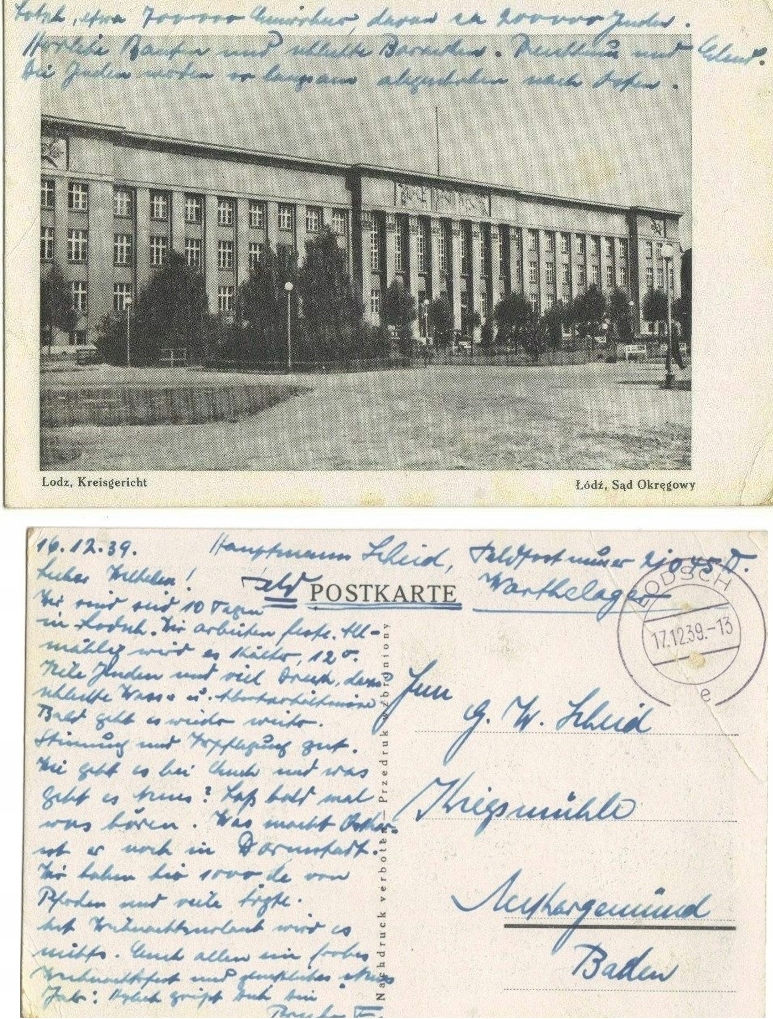 Lodsch, etwa 700000 Einwohner, davon ca 200000 Juden.
Herrliche Bauten und schlechte Baracken. Reichtum und Elend.
Die Juden werden so langsam abgeschoben nach Osten.
Lodz, Kreisgericht
Łódź, Sąd Okręgowy
16.12.39. Hauptmann Scheid, Feldpostnummer
Warthelager
Feld POSTKARTE
LODSCH
17.12.39.-13
e
Lieber Wilhelm!
Wir sind seit 10 Tagen
in Lodsch. Wir arbeiten feste. All-
mählig wird es kälter, 12°.
Viele Juden und viel Dreck, dazu
schlechte Wasser u.
Bald geht es wieder weiter.
Stimmung und Verpflegung gut.
Wie geht es bei Euch und was
gibt es Neues? Laß bald mal
was hören. Was macht
ist er noch in Darmstadt.
Wir haben hier 1000de von
und viele Ärzte.
Mit Weihnachtsurlaub wird es
nichts. Euch allen ein frohes
Weihnachtsfest und glückliches Neues
Jahr! Herzlich grüßt Dich Dein
Bruder
Nachdruck verboten — Przedruk wzbroniony
G. W. Scheid
Kriegsmühle
Neckargemünd
Baden